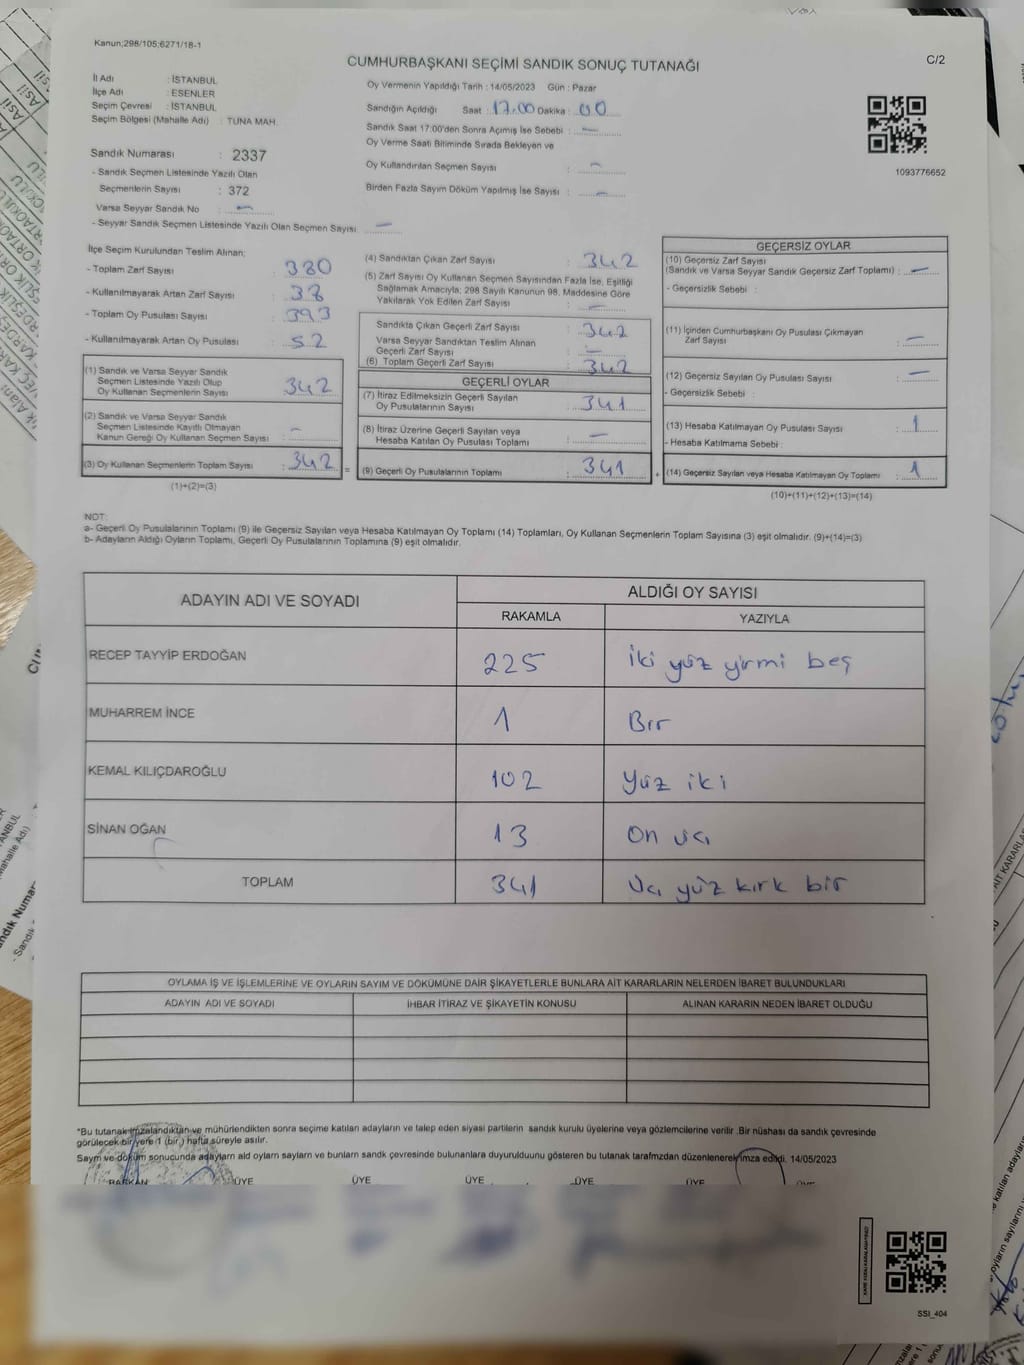 Kanun;298/105;6271/18-1
CUMHURBAŞKANI SEÇİMİ SANDIK SONUÇ TUTANAĞI
C/2
İl Adı : İSTANBUL
İlçe Adı : ESENLER
Seçim Çevresi : İSTANBUL
Seçim Bölgesi (Mahalle Adı) : TUNA MAH.
Sandık Numarası : 2337
- Sandık Seçmen Listesinde Yazılı Olan
Seçmenlerin Sayısı : 372
Varsa Seyyar Sandık No : -
- Seyyar Sandık Seçmen Listesinde Yazılı Olan Seçmen Sayısı : -
Oy Vermenin Yapıldığı Tarih : 14/05/2023 Gün : Pazar
Sandığın Açıldığı Saat : 17.00 Dakika : 00
Sandık Saat 17:00'den Sonra Açımış İse Sebebi : -
Oy Verme Saati Bitiminde Sırada Bekleyen ve
Oy Kullandırılan Seçmen Sayısı : -
Birden Fazla Sayım Döküm Yapılmış İse Sayısı : -
1093776652
İlçe Seçim Kurulundan Teslim Alınan;
- Toplam Zarf Sayısı : 380
- Kullanılmayarak Artan Zarf Sayısı : 38
- Toplam Oy Pusulası Sayısı : 393
- Kullanılmayarak Artan Oy Pusulası : 52
(1) Sandık ve Varsa Seyyar Sandık
Seçmen Listesinde Yazılı Olup
Oy Kullanan Seçmenlerin Sayısı : 342
(2) Sandık ve Varsa Seyyar Sandık
Seçmen Listesinde Kayıtlı Olmayan
Kanun Gereği Oy Kullanan Seçmen Sayısı : -
(3) Oy Kullanan Seçmenlerin Toplam Sayısı : 342 =
(1)+(2)=(3)
(4) Sandıktan Çıkan Zarf Sayısı : 342
(5) Zarf Sayısı Oy Kullanan Seçmen Sayısından Fazla İse, Eşitliği
Sağlamak Amacıyla; 298 Sayılı Kanunun 98. Maddesine Göre
Yakılarak Yok Edilen Zarf Sayısı : -
Sandıkta Çıkan Geçerli Zarf Sayısı : 342
Varsa Seyyar Sandıktan Teslim Alınan
Geçerli Zarf Sayısı : -
(6) Toplam Geçerli Zarf Sayısı : 342
GEÇERLİ OYLAR
(7) İtiraz Edilmeksizin Geçerli Sayılan
Oy Pusulalarının Sayısı : 341
(8) İtiraz Üzerine Geçerli Sayılan veya
Hesaba Katılan Oy Pusulası Toplamı : -
(9) Geçerli Oy Pusulalarının Toplamı : 341 +
GEÇERSİZ OYLAR
(10) Geçersiz Zarf Sayısı
(Sandık ve Varsa Seyyar Sandık Geçersiz Zarf Toplamı) : -
- Geçersizlik Sebebi :
(11) İçinden Cumhurbaşkanı Oy Pusulası Çıkmayan
Zarf Sayısı : -
(12) Geçersiz Sayılan Oy Pusulası Sayısı : -
- Geçersizlik Sebebi :
(13) Hesaba Katılmayan Oy Pusulası Sayısı : 1
- Hesaba Katılmama Sebebi :
(14) Geçersiz Sayılan veya Hesaba Katılmayan Oy Toplamı : 1
(10)+(11)+(12)+(13)=(14)
NOT:
a- Geçerli Oy Pusulalarının Toplamı (9) ile Geçersiz Sayılan veya Hesaba Katılmayan Oy Toplamı (14) Toplamları, Oy Kullanan Seçmenlerin Toplam Sayısına (3) eşit olmalıdır. (9)+(14)=(3)
b- Adayların Aldığı Oyların Toplamı, Geçerli Oy Pusulalarının Toplamına (9) eşit olmalıdır.
ADAYIN ADI VE SOYADI
ALDIĞI OY SAYISI
RAKAMLA YAZIYLA
RECEP TAYYİP ERDOĞAN 225 İki yüz yirmi beş
MUHARREM İNCE 1 Bir
KEMAL KILIÇDAROĞLU 102 Yüz iki
SİNAN OĞAN 13 On üç
TOPLAM 341 Üç yüz kırk bir
OYLAMA İŞ VE İŞLEMLERİNE VE OYLARIN SAYIM VE DÖKÜMÜNE DAİR ŞİKAYETLERLE BUNLARA AİT KARARLARIN NELERDEN İBARET BULUNDUKLARI
ADAYIN ADI VE SOYADI İHBAR İTİRAZ VE ŞİKAYETİN KONUSU ALINAN KARARIN NEDEN İBARET OLDUĞU
*Bu tutanak imzalandıktan ve mühürlendikten sonra seçime katılan adayların ve talep eden siyasi partilerin sandık kurulu üyelerine veya gözlemcilerine verilir .Bir nüshası da sandık çevresinde
görülecek bir yere 1 (bir) hafta süreyle asılır.
Sayım ve döküm sonucunda adayların ald oyların sayları ve bunların sandk çevresinde bulunanlara duyurulduunu gösteren bu tutanak tarafmzdan düzenlenerek imza edildi. 14/05/2023
BAŞKAN ÜYE ÜYE ÜYE ÜYE ÜYE
SSI_404